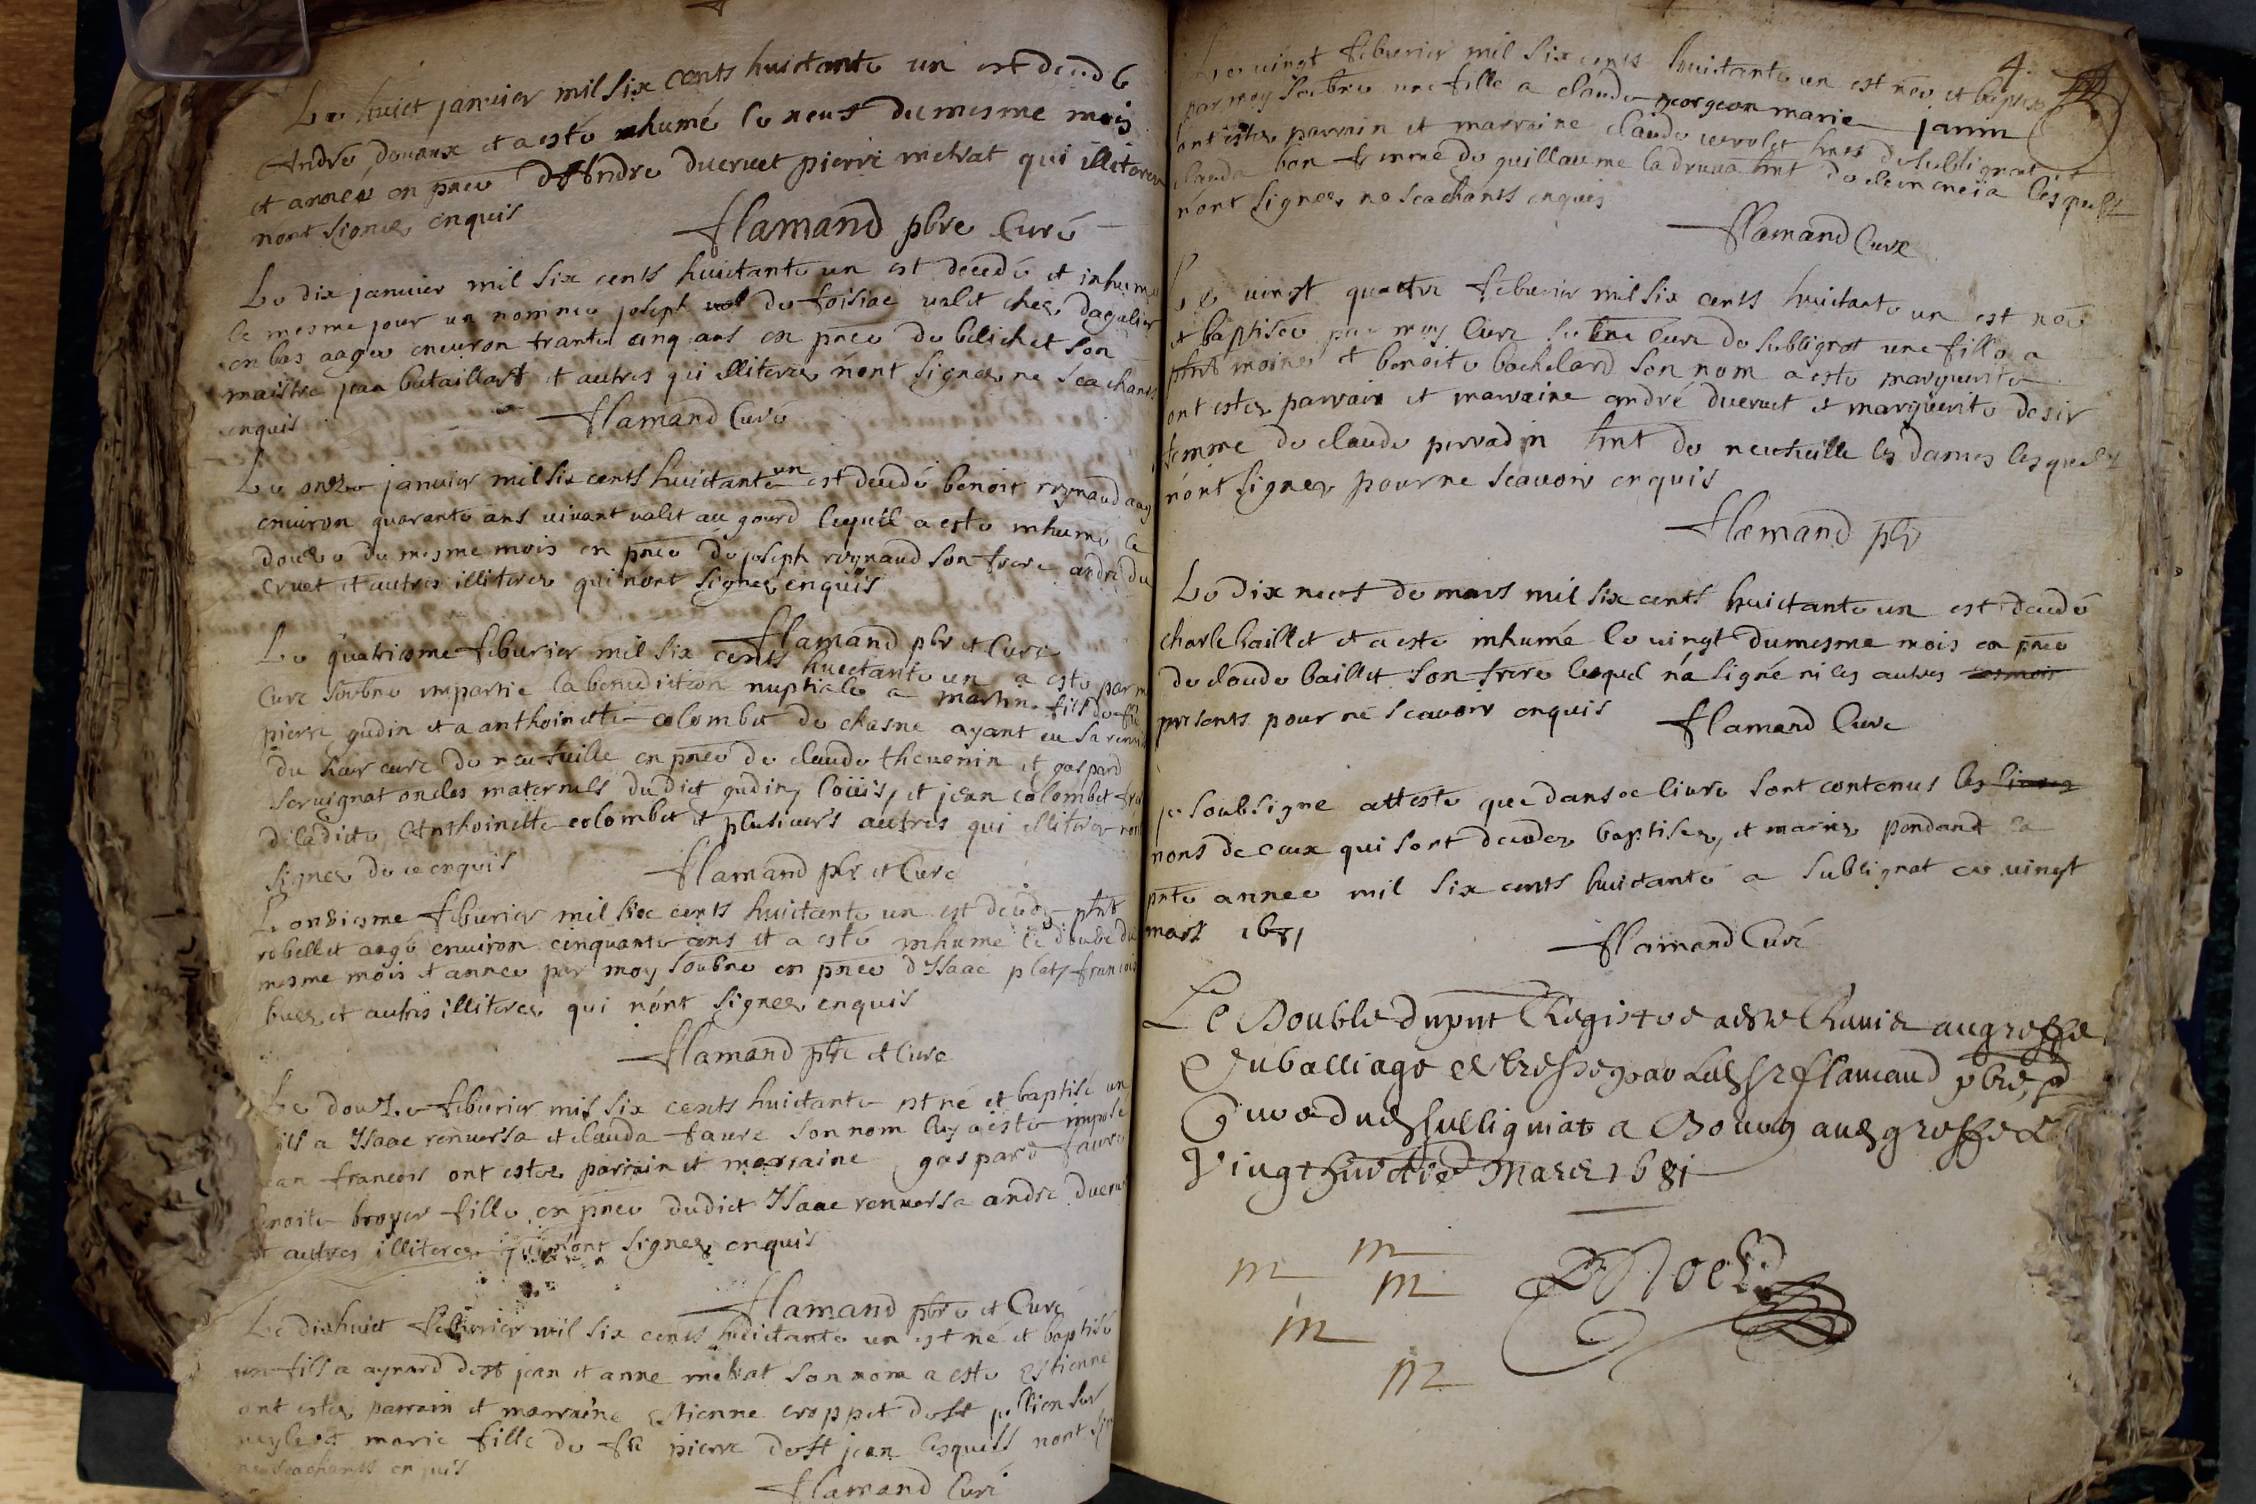 Le huict janvier mil six cents huictante un est decedé
André douaux et a esté inhumé le neuf du mesme mois
et année en pnce D'Andre ducruet pierre metrat qui illiteres
nont signés enquis
flamand pbre Curé
Le dix janvier mil six cents huictante un est decedé et inhumé
le mesme jour un nommé joseph de foisiac valet chez dagalier
en bas aagé environ trante cinq ans en pnce de belichet son
maistre jean bataillard et autres qui illiteres n'ont signés ne scachants
enquis
flamand Curé
Le onze janvier mil six cents huictante un est decedé benoit roynaud aag
environ quarante ans vivant valet au gourd lequel a esté inhumé le
douze du mesme mois en pnce de joseph roynaud son frere andre du
cruet et autres illiteres qui n'ont signés enquis
flamand pbr et Curé
Le quatriesme febvrier mil six cents huictante un a esté par m
Curé soubné impartie la benediction nuptiale a martin fils de feu
pierre gudin et a anthoinette colombet du chasne ayant eu sa remise
du sieur curé de neufville en pnce de claude thevenin et gaspard
servignat oncles maternels dudict gudin, louis, et jean colombet fre
de ladicte Anthoinette colombet et plusieurs autres qui illiteres n'ont
signés de ce enquis
flamand pbr et Curé
Le onziesme febvrier mil six cents huictante un est decedé phbt
robellet aagé environ cinquante ans et a esté inhumé le douze du
mesme mois et année par moy soubné en pnce d'Isaac plat, francois
buez et autres illiteres qui n'ont signés enquis
flamand pbr et Curé
Le douze febvrier mil six cents huictante est né et baptisé un
fils a Isaac renversa et clauda faure son nom luy a esté imposé
jean francois ont estés parrain et marraine gaspard faure
benoite broyer fille en pnce dudict Isaac renversa andre ducruet
et autres illiteres qui n'ont signés enquis
flamand pbre et Curé
Le dixhuict febvrier mil six cents huictante un est né et baptisé
un fils a aynard dest jean et anne metrat son nom a esté Estienne
ont estés parrain et marraine Estienne croppet de st jullien sur
et marie fille de feu pierre dest jean lesquels nont
ne scachants enquis
flamand Curé
4
Le vingt febvrier mil six cents huictante un est née et baptisé
par moy soubné une fille a claude georgeon marie janin
ont estés parrain et marraine claude hnt de sullignat et
clauda bon femme de guillaume la druva hnt de lesquels
n'ont signés ne scachants enquis
flamand Curé
Le vingt quatre febvrier mil six cents huictante un est née
et baptisée par moy Curé soubné Curé de sullignat une fille a
phbt moine et benoite bachelard son nom a esté marguerite
ont estés parrain et marraine andré ducruet et marguerite desir
femme de claude perradin hnt de neufville les dames lesquels
n'ont signés pour ne scavoir enquis
flamand pbr
Le dix neuf de mars mil six cents huictante un est decedé
charle baillet et a esté inhumé le vingt du mesme mois en pnce
de claude baillet son frere lequel n'a signé ni les autres
presents pour ne scavoir enquis flamand Curé
je soubsigné atteste que dans ce livre sont contenus les
noms de ceux qui sont decedés baptisés, et mariés pendant la
pnte année mil six cents huictante a sublignat ce vingt
mars 1681
flamand Curé
Le Double du pnt Registre a esté Remis au greffe
Du balliage de bresse par Led. sr flamand pbre,
Curé dud. sulligniat a Bourg aud. greffe le
Vingt huictie Mars 1681
m m
m
m
m
Noel